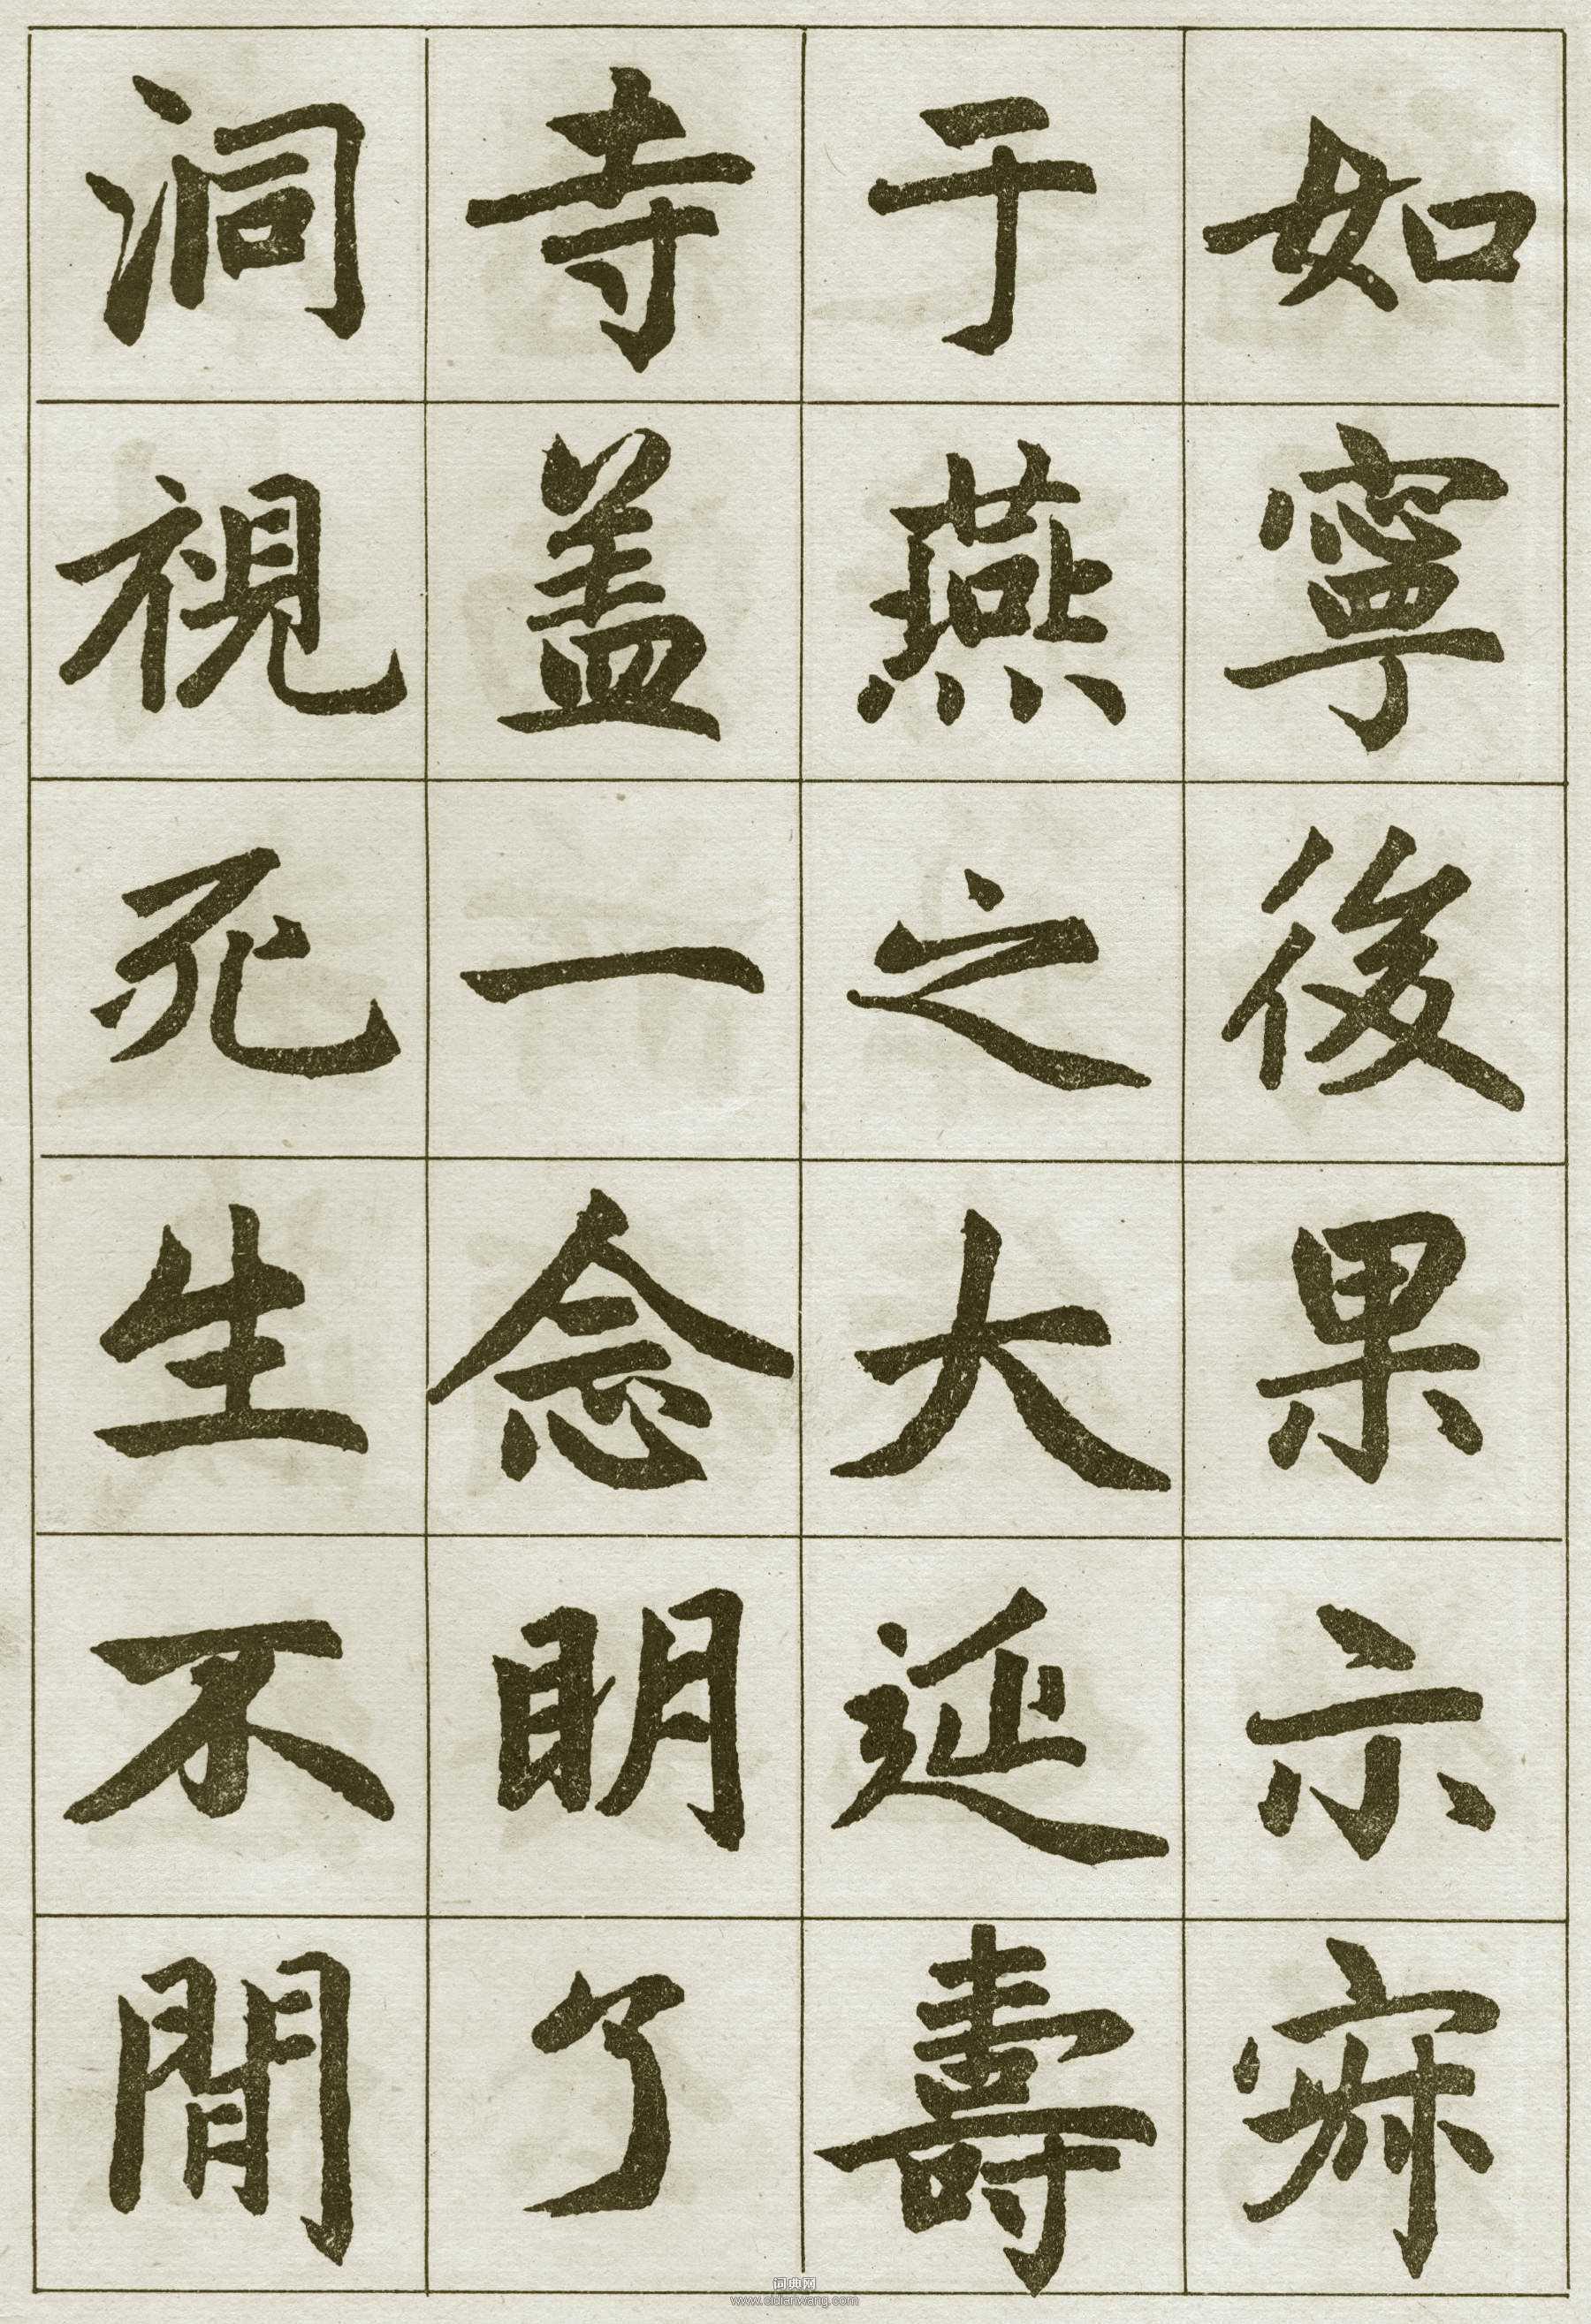 如寧後果示寂
于燕之大延壽
寺盖一念明了
洞視死生不間
词典网
www.cidianwang.com